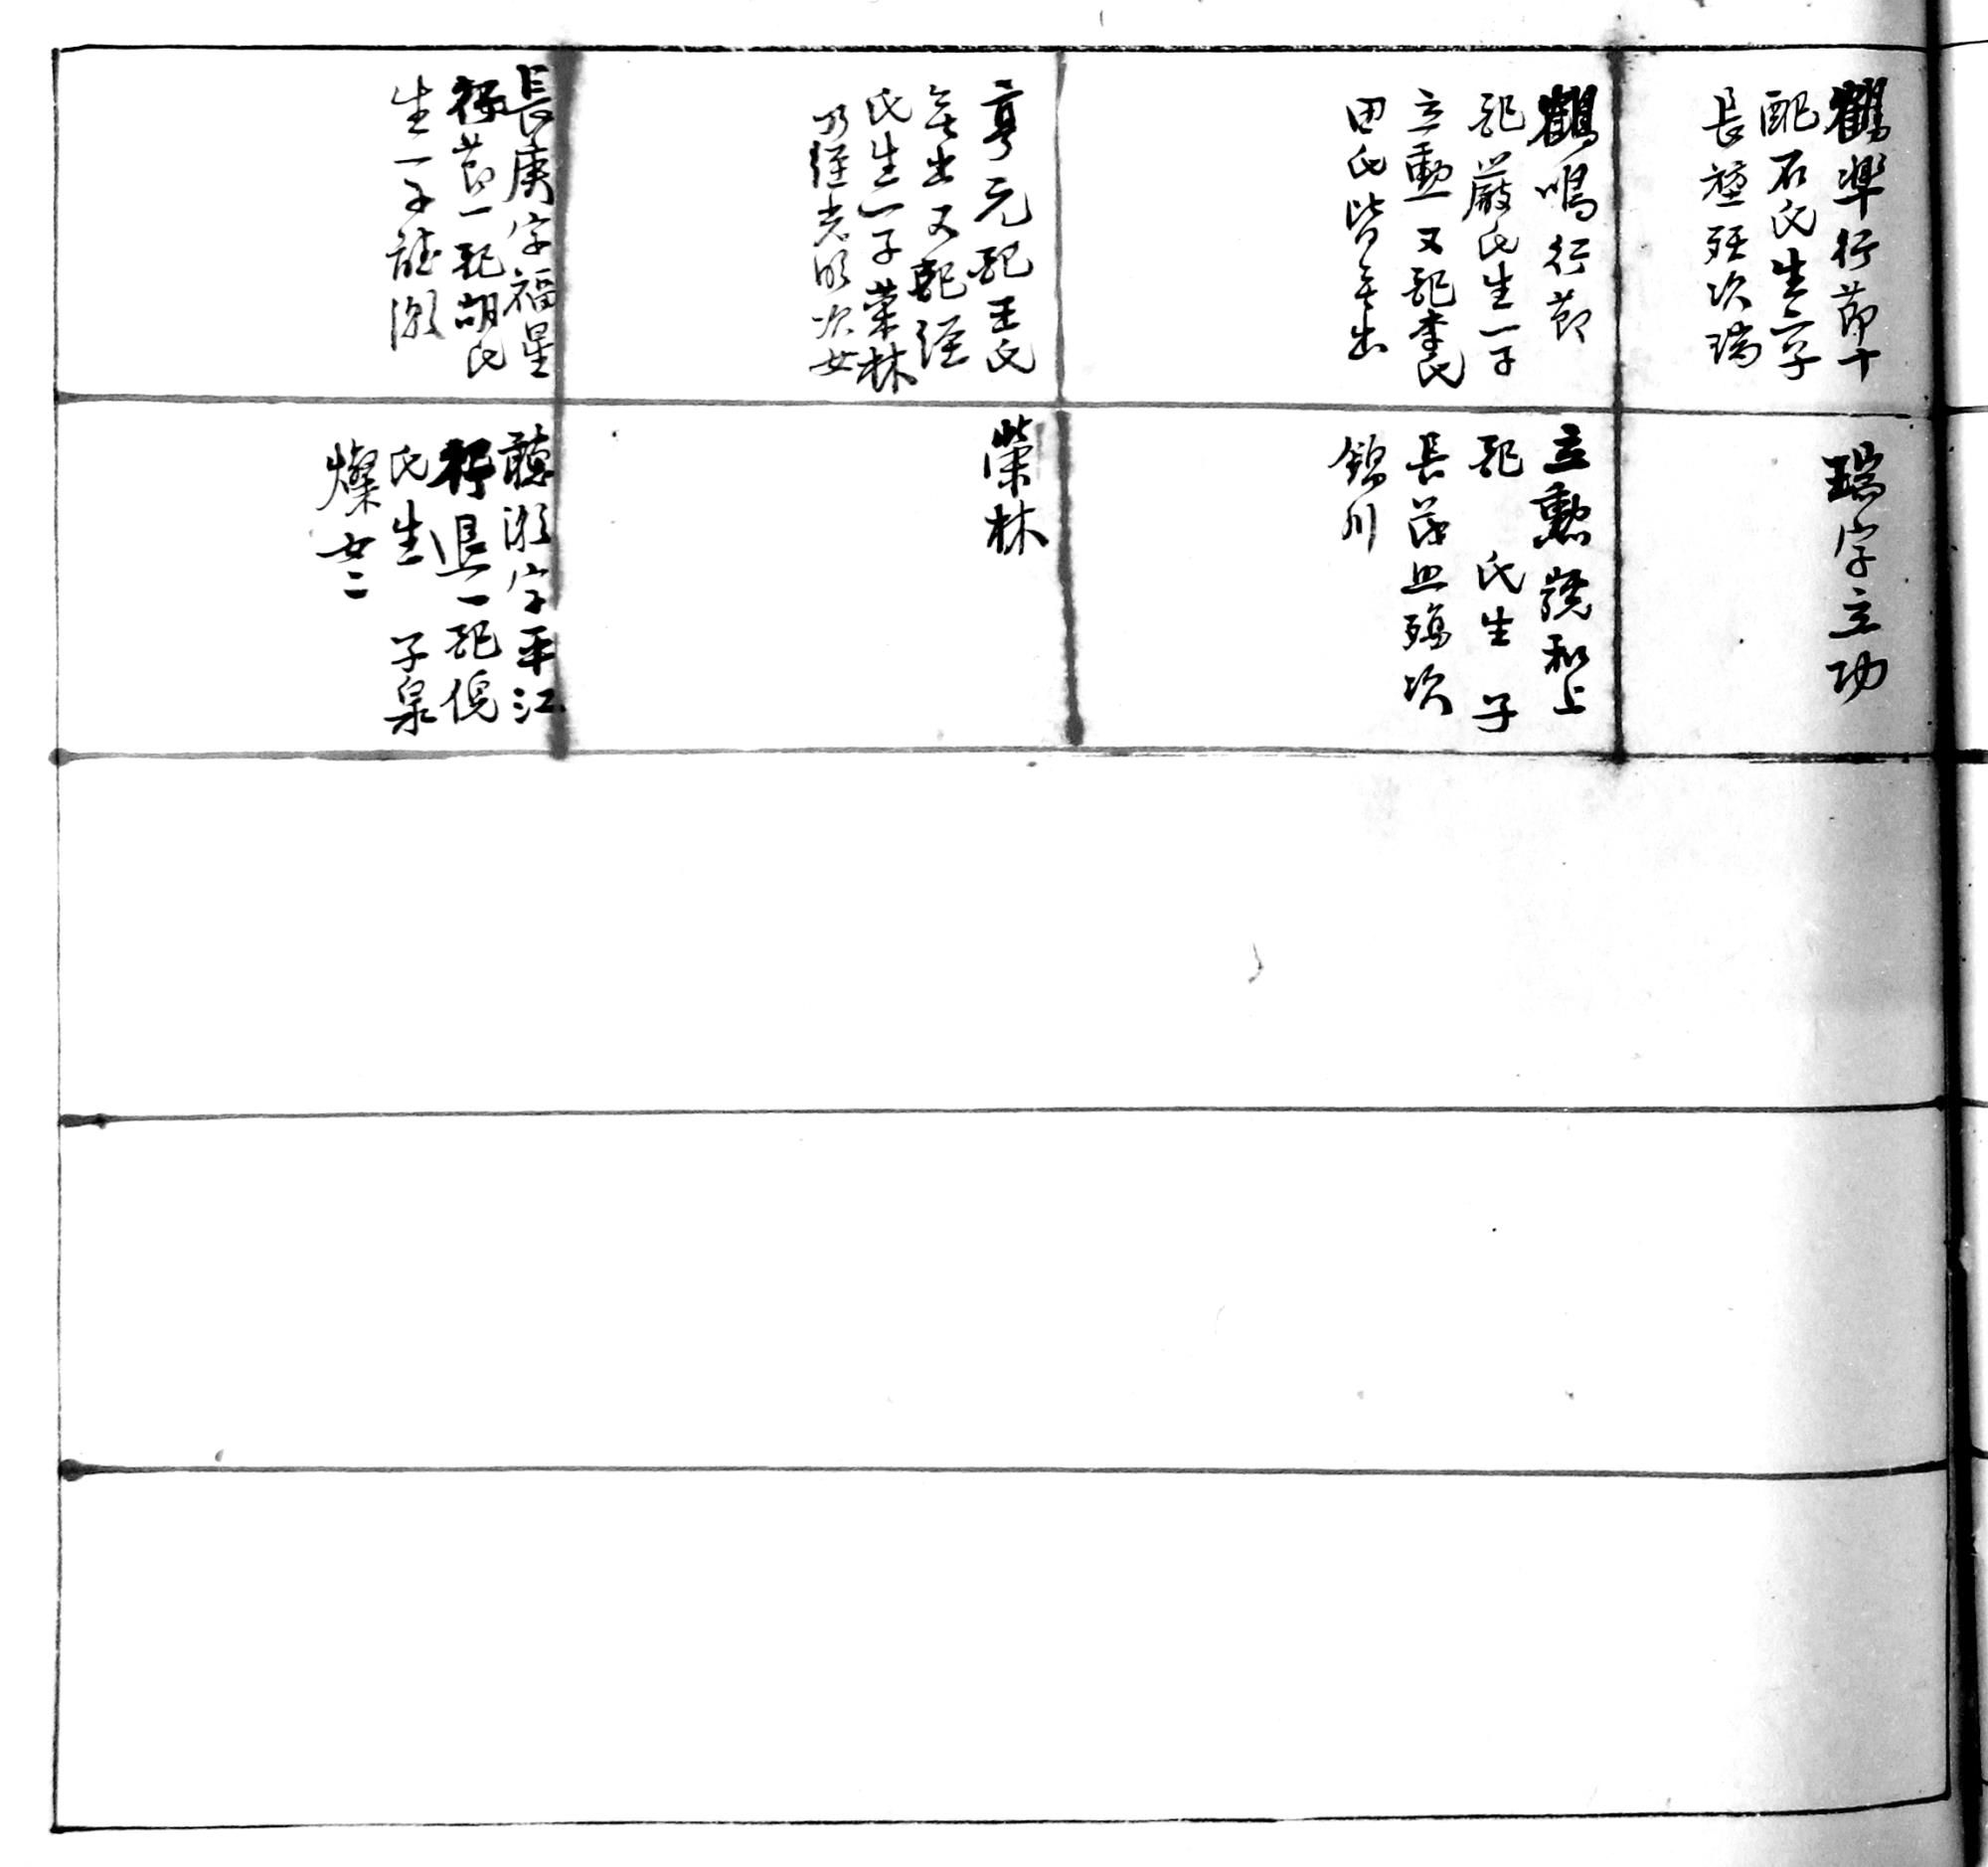 鶴準行節十
配石氏生二子
長 殤次瑞
鶴鳴行節
配嚴氏生一子
立勳又配李氏
田氏皆無出
亨元配王氏
無出又配經
氏生一子榮林
乃經老 次女
長庚字福星
行節一配胡氏
生一子聽濤
瑞字立功
立勳 和上
配 氏生 子
長茂 殤次
錦川
榮林
聽濤字平江
行 一配倪
氏生 子泉
燦女二